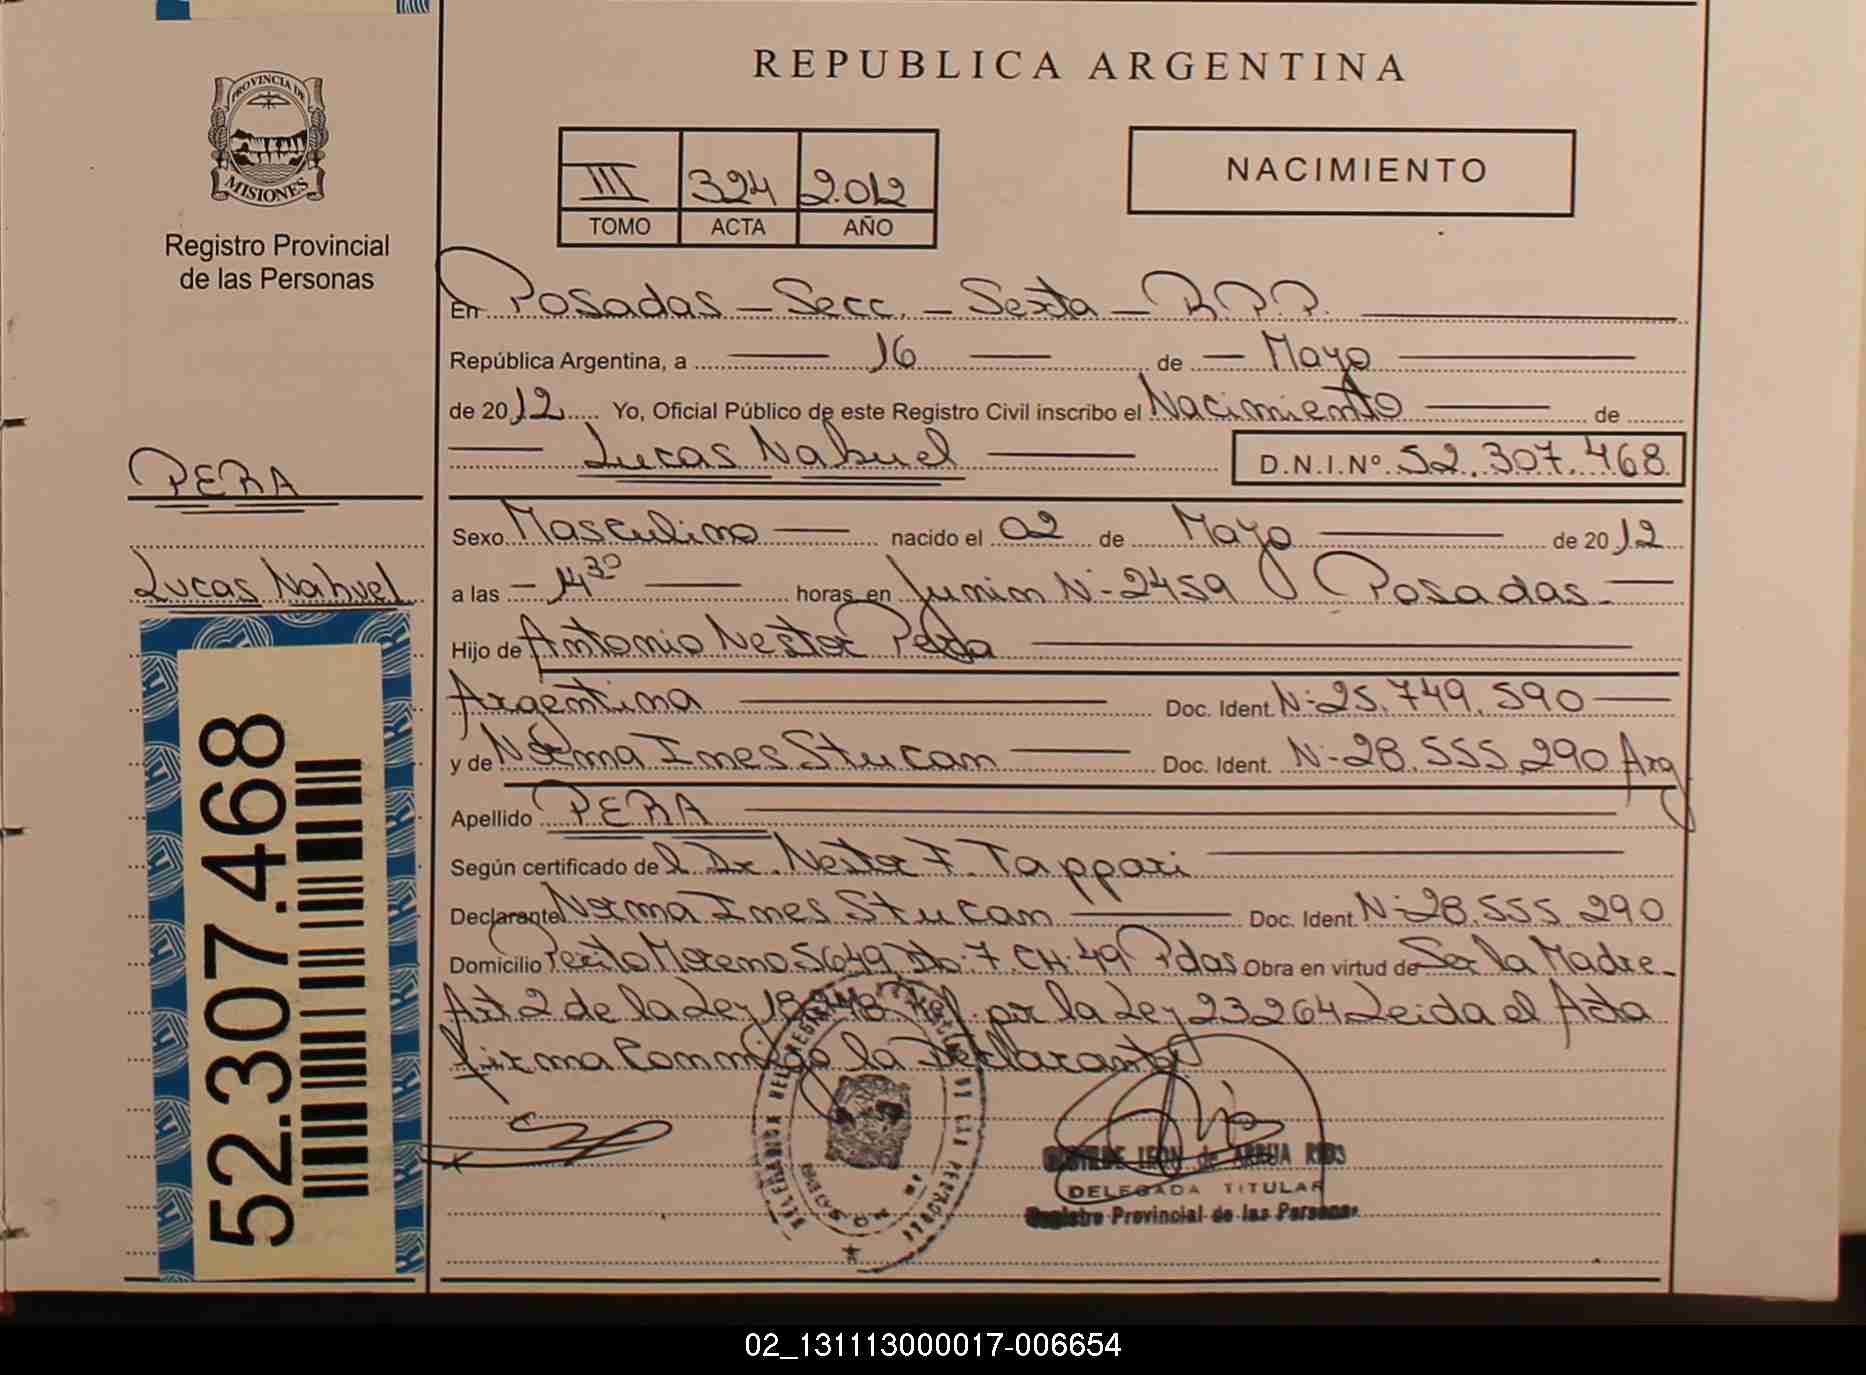 PROVINCIA DE
MISIONES
Registro Provincial
de las Personas
REPUBLICA ARGENTINA
III 324 2.012
TOMO ACTA AÑO
NACIMIENTO
En Posadas - Secc. - Sexta - R.P.P.
República Argentina, a 16 de Mayo
de 2012 Yo, Oficial Público de este Registro Civil inscribo el Nacimiento de
Lucas Nahuel D.N.I.Nº 52.307.468
PERA
Lucas Nahuel
52.307.468
Sexo Masculino nacido el 02 de Mayo de 2012
a las 14 30 horas, en Junin N-2459 Posadas
Hijo de Antonio Nestor Pera
Argentina Doc. Ident. N-25.749.590
y de Norma Ines Stucan Doc. Ident. N-28.555.290 Arg
Apellido PERA
Según certificado del Dr. Nestor F. Tappari
Declarante Norma Ines Stucan Doc. Ident. N-28.555.290
Domicilio Perito Moreno 5649 Dto. 7 CH. 49 Pdas Obra en virtud de Ser la Madre-
Art 2 de la Ley por la Ley 23264 Leida el Acta
firma Conmigo la Declarante
LEON de ARRUA RIOS
DELEGADA TITULAR
Registro Provincial de las Personas
02_131113000017-006654